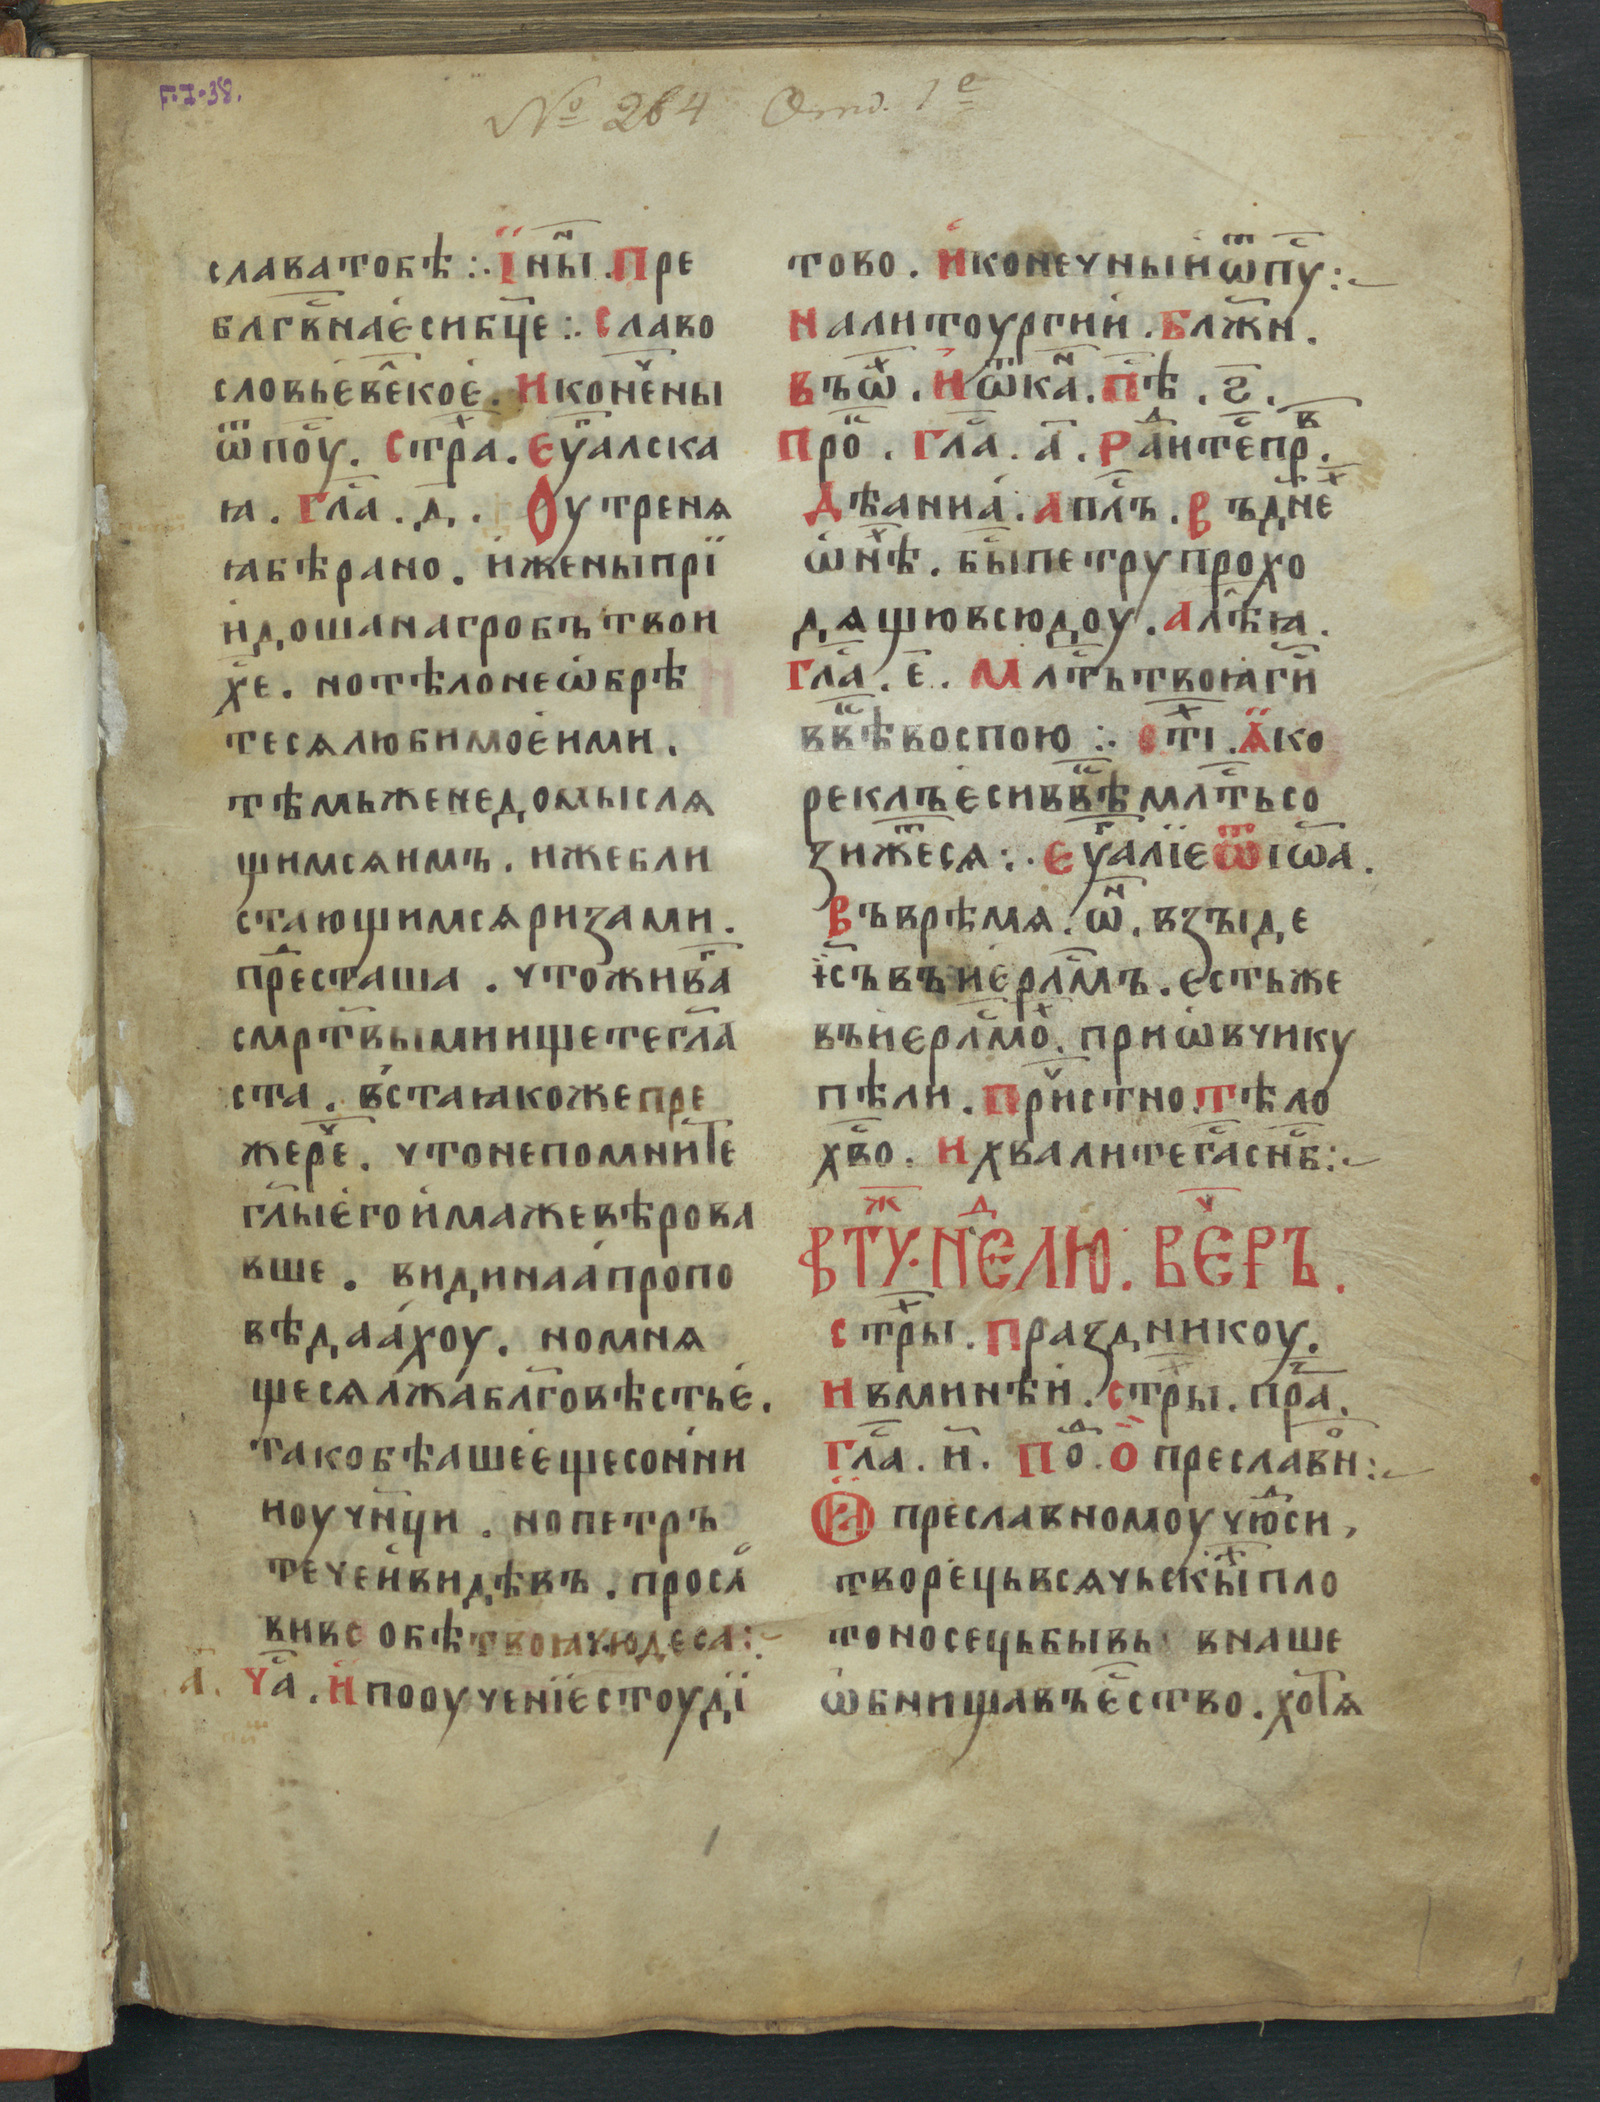 F.I.38.
№ 264 Отд. 1е
славатобѣ:· Ї нн҃ы. Пре
блгв҃наѐсибц҃е:· Славо
словьѐвеⷧ҇коѐ. Иконеч҇ны
ѿпоⷭу. Стрⷯа. Єуⷢ҇алска
ꙗ. Глⷭа. д҃. Оутренѧ
ꙗбѣрано. ѝженыпрї
ѝдошанагробътвои
хⷭе. нотѣлонеѡбрѣ
тесѧлюбимоѐими.
тѣмьженедомыслѧ
щимсѧимъ. ижебли
стающимсѧризами.
прⷣесташа. чтоживаⷢ҇
смрт҃вымиищетеглⷭа
ста. въстаꙗкожепре
жереⷱ҇. чтонепомните
гл҃ыѐгоѝмажевѣрова
вше. видинаа̀пропо
вѣдаа̀хоу. номнѧ
щесѧлжа̀блⷢ҇овѣстьѐ.
такобѣашеѐщесоѝни
ноучн҃ци. нопетръ
течеѝвидѣвъ. прослⷶ
вивсобѣтвоꙗчюдеса:~
а҃. Чаⷭ. Ѝпооученїестоудї
тово. Ѝконечныиѿпуⷭ:~
Налитоургиѝ. Блжⷩ҇и.
Въѡⷯ. Иѿкаⷩ. Пⷭѣ. ѕ҃.
Проⷦ. Глⷭа. а҃. Рⷣаитеⷭпрⷡ.
Дѣаниа̀. апⷭлъ. Въднеⷯ
ѡнⷯѣ. быⷭпетрупрохо
дѧщювсюдоу. Алѣⷧꙗ.
Глⷭа. е҃. Млⷭтьтвоꙗги҃
ввⷦѣвоспою:· Стⷯі. Ꙗко
реклъѐсиввⷦѣмлⷭтьсо
зижⷮесѧ:· Єуⷢ҇алїеѿіѡа.
Въврѣмѧ. ѡⷩ. взыде
іс҃ъвъиѐрлⷭмъ. естьже
въиѐрлⷭмоⷯ. приѡвчику
пѣли. Причⷱ҇истно. Тѣло
хв҃о. Ихвалитегⷭаснⷭб:~
ВТУⷤ. НЕⷣЛЮ. ВЕⷱ҇РЪ.
Стрⷯы. Праздникоу.
Ивминѣѝ. Стрⷯы. прⷥа.
Глⷭа. и҃. Поⷣ. Ѻ преславⷪн:~
Ѻ преславномоучюⷣси,
творецьвсѧчьскыⷯпло
тоносецьбывь внаше
ѡбнищавъеⷭство. хотѧ
1